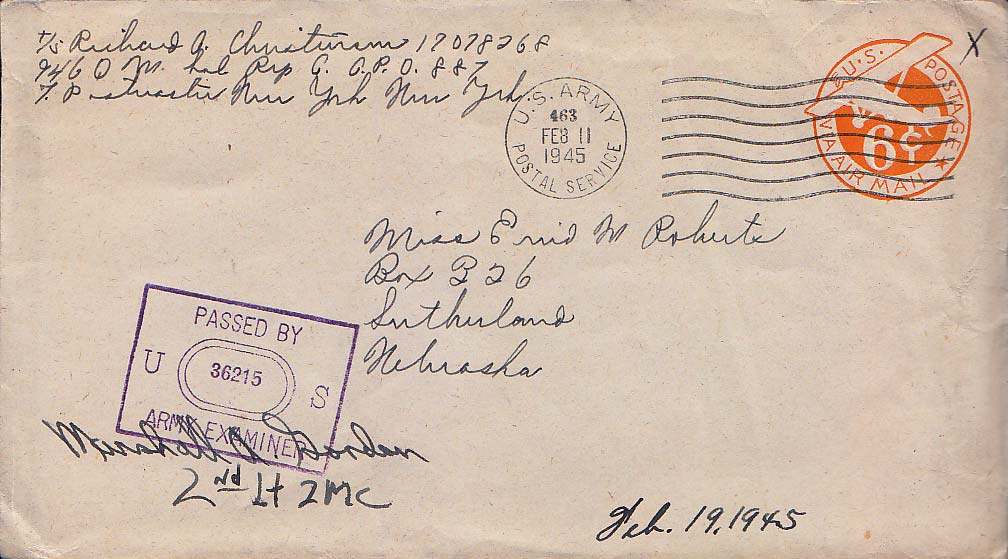 T/5 Richard A. Christensen 17078268
946 Q M. Sal Rep Co. A.P.O. 887
% Postmaster New York New York
U.S. ARMY
463
FEB 11
1945
POSTAL SERVICE
U.S. POSTAGE
6¢
VIA AIR MAIL
X
Miss Enid W Roberts
Box 326
Sutherland
Nebraska
PASSED BY
U 36215 S
ARMY EXAMINER
Marshall W. Gorden
2nd Lt QMC
Feb. 19, 1945